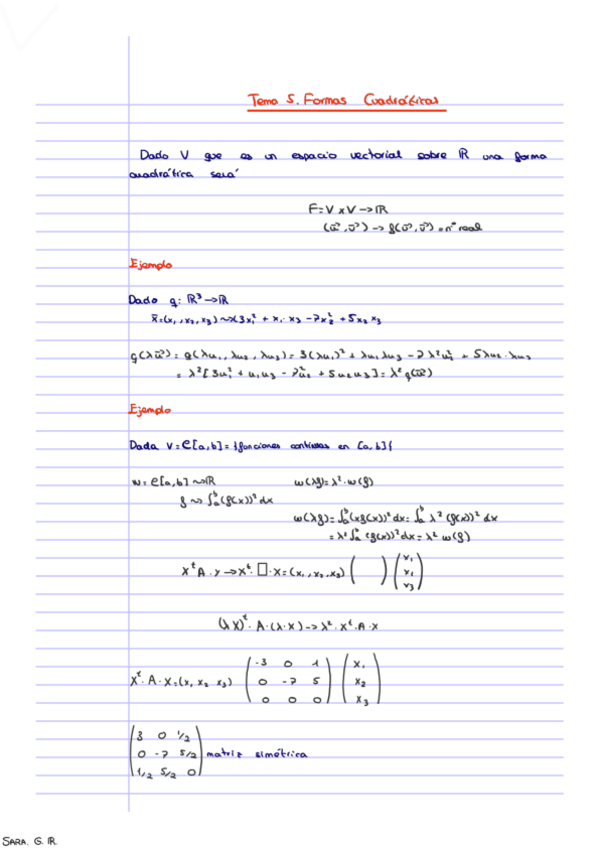 Tema 5. Formas Cuadráticas
Dado V que es un espacio vectorial sobre ℝ una forma
cuadrática será
F=V x V → ℝ
(u⃗, v⃗) → f(u⃗, v⃗) = nº real
Ejemplo
Dado q: ℝ³ → ℝ
x̄=(x₁, x₂, x₃) ⇝ 3x₁² + x₁·x₃ - 7x₂² + 5x₂x₃
q(λu⃗) = q(λu₁, λu₂, λu₃) = 3(λu₁)² + λu₁λu₃ - 7λ²u₂² + 5λu₂·λu₃
= λ²[3u₁² + u₁u₃ - 7u₂² + 5u₂u₃] = λ²q(u⃗)
Ejemplo
Dada V = C[a,b] = {funciones continuas en [a,b]{
w = C[a,b] ⇝ ℝ w(λf) = λ²·w(f)
f ⇝ ∫ₐᵇ(f(x))² dx
w(λf) = ∫ₐᵇ(λf(x))² dx = ∫ₐᵇ λ² (f(x))² dx
= λ² ∫ₐᵇ (f(x))² dx = λ² w(f)
Xᵗ A · y → Xᵗ · □ · X = (x₁, x₂, x₃) ( ) (x₁ x₁ x₃)
(λX)ᵗ · A · (λ·X) → λ² · Xᵗ · A · X
Xᵗ · A · X = (x₁ x₂ x₃) (-3 0 1
0 -7 5
0 0 0) (x₁
x₂
x₃)
(3 0 1/2
0 -7 5/2
1/2 5/2 0) matriz simétrica
SARA. G. R.